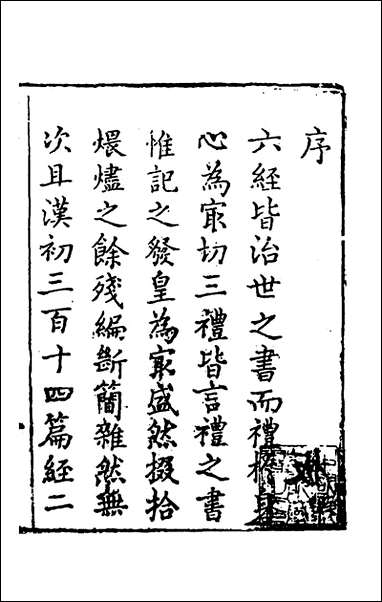 序
六經皆治世之書而禮於身
心為㝡切三禮皆言禮之書
惟記之發皇為㝡盛然掇拾
煨燼之餘殘編斷簡雜然無
次且漢初三百十四篇經二